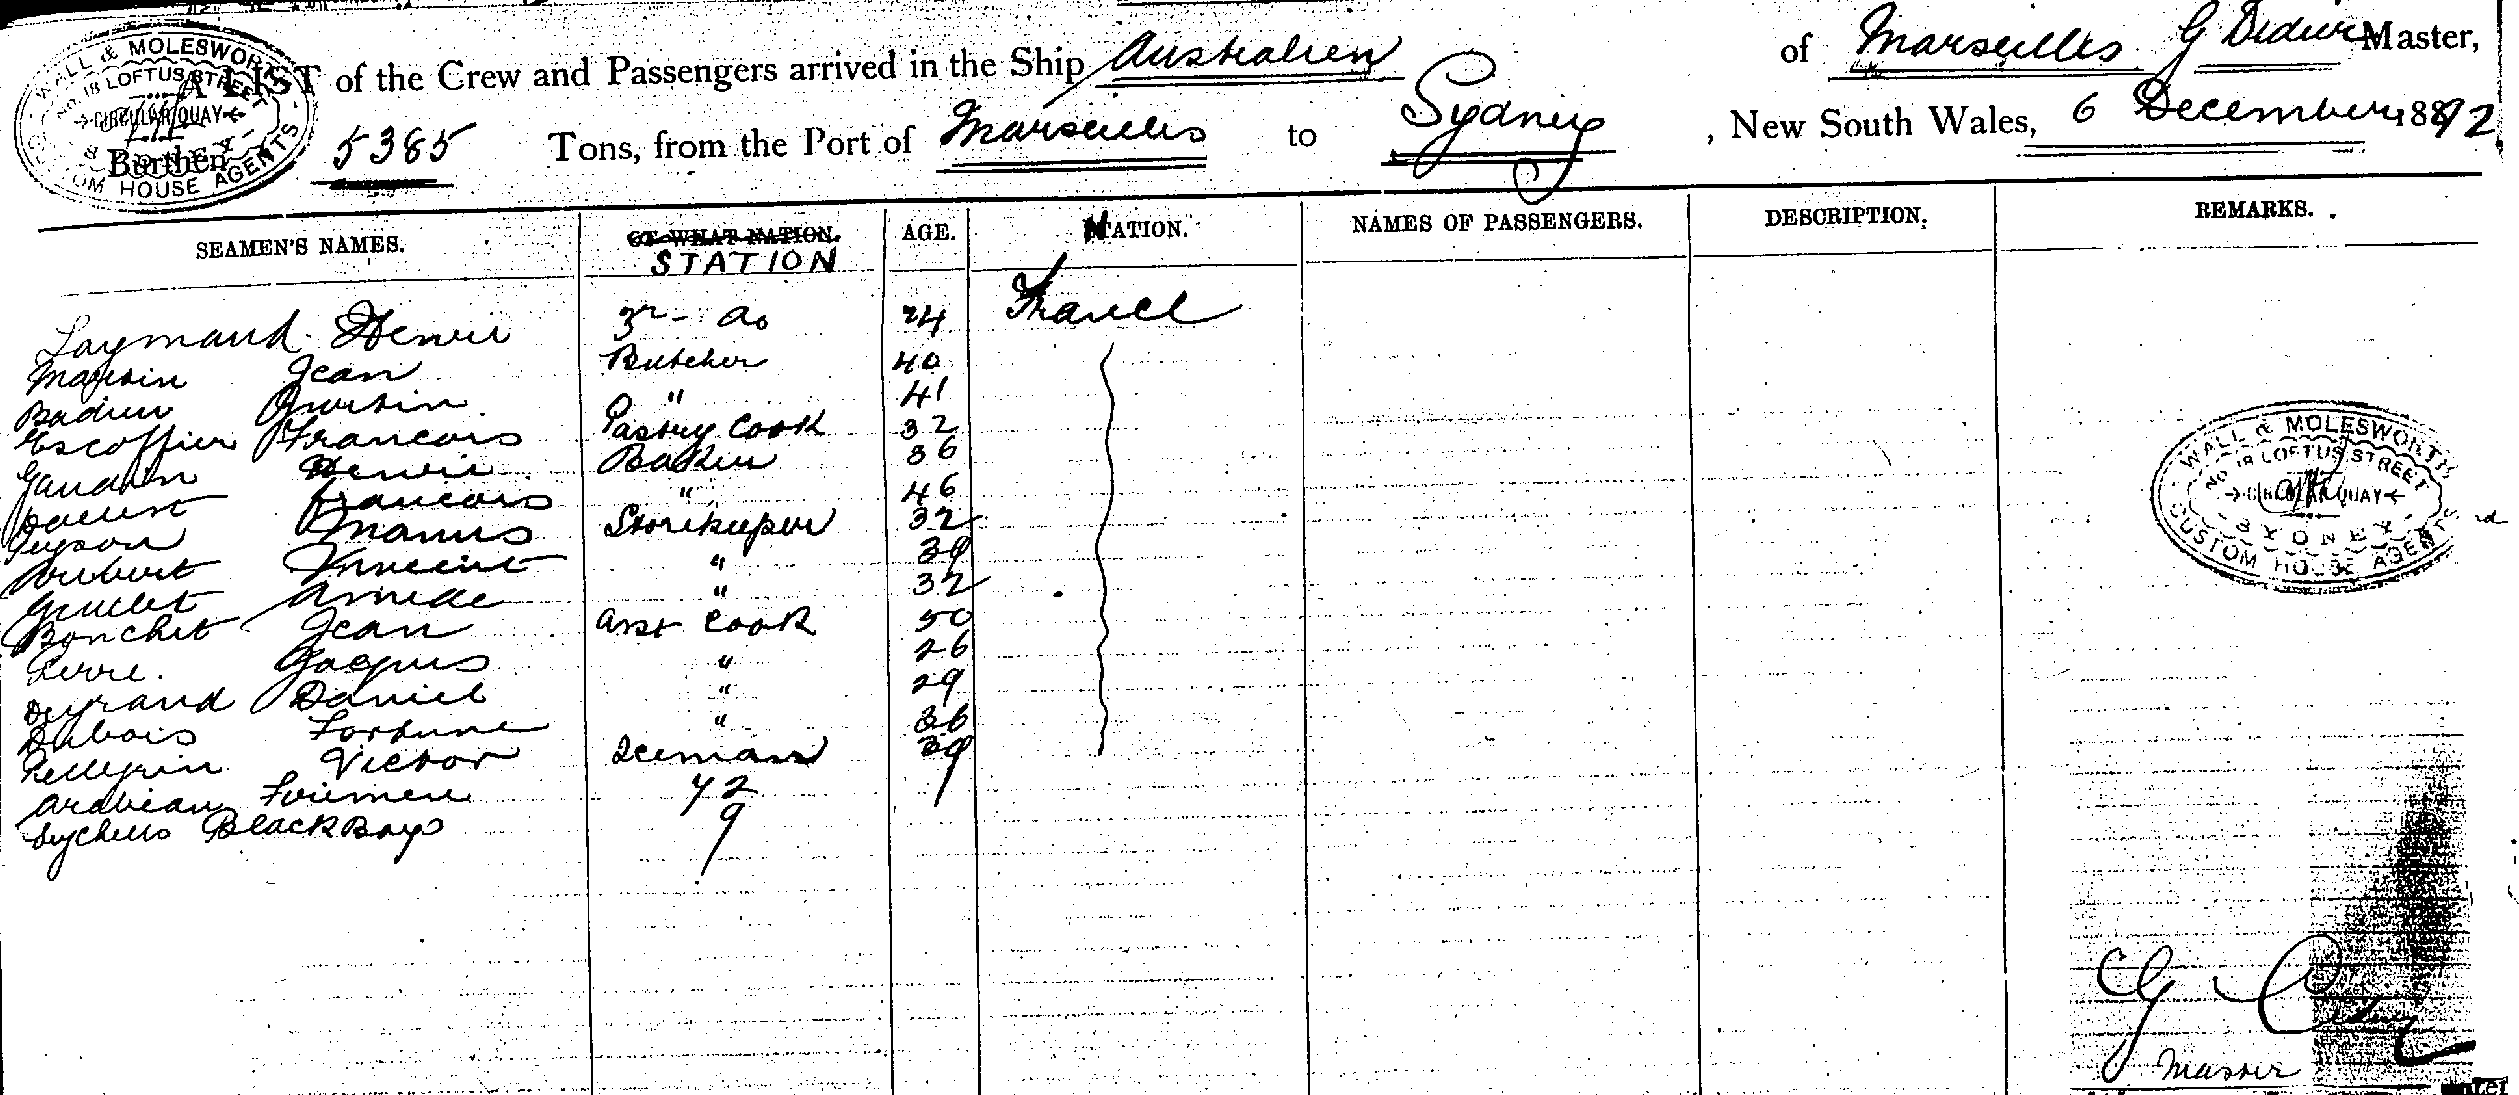 A LIST of the Crew and Passengers arrived in the Ship Australien of Marseilles G Didier Master,
Burthen 5385 Tons, from the Port of Marseilles to Sydney, New South Wales, 6 December 1892
WALL & MOLESWORTH
No 18 LOFTUS STREET
CIRCULAR QUAY
SYDNEY
CUSTOM HOUSE AGENTS
SEAMEN'S NAMES. OF WHAT NATION. STATION AGE. NATION. NAMES OF PASSENGERS. DESCRIPTION. REMARKS.
Laymand Henri 3r - do 24 France
Jean Butcher 40
Badieu " 41
Escoffier Francois Pastry Cook 32
Gaudin Henri Baker 36
Francois " 46
Marius Storekeeper 32
Joubert Vincent " 39
Amede " 32
Bonchet Jean Asst Cook 50
Serre. Jacques " 26
Deyrand Daniel " 29
Dubois Fortune " 36
Pellegrin Victor Iceman 39
Arabian Firemen 42
Sychells Black Boys 9
WALL & MOLESWORTH
No 18 LOFTUS STREET
CIRCULAR QUAY
SYDNEY
CUSTOM HOUSE AGENTS
G
Master